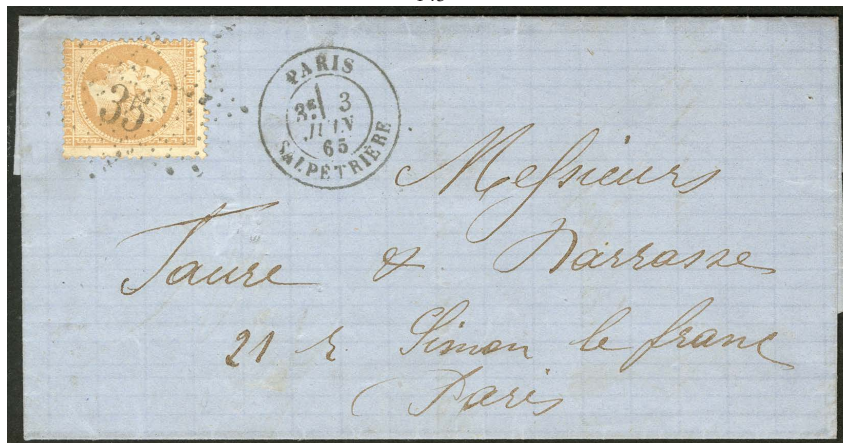 35
PARIS
3E 3
JUIN
65
SALPÊTRIÈRE
Messieurs
Faure & Darrasse
21 r. Simon le franc
Paris